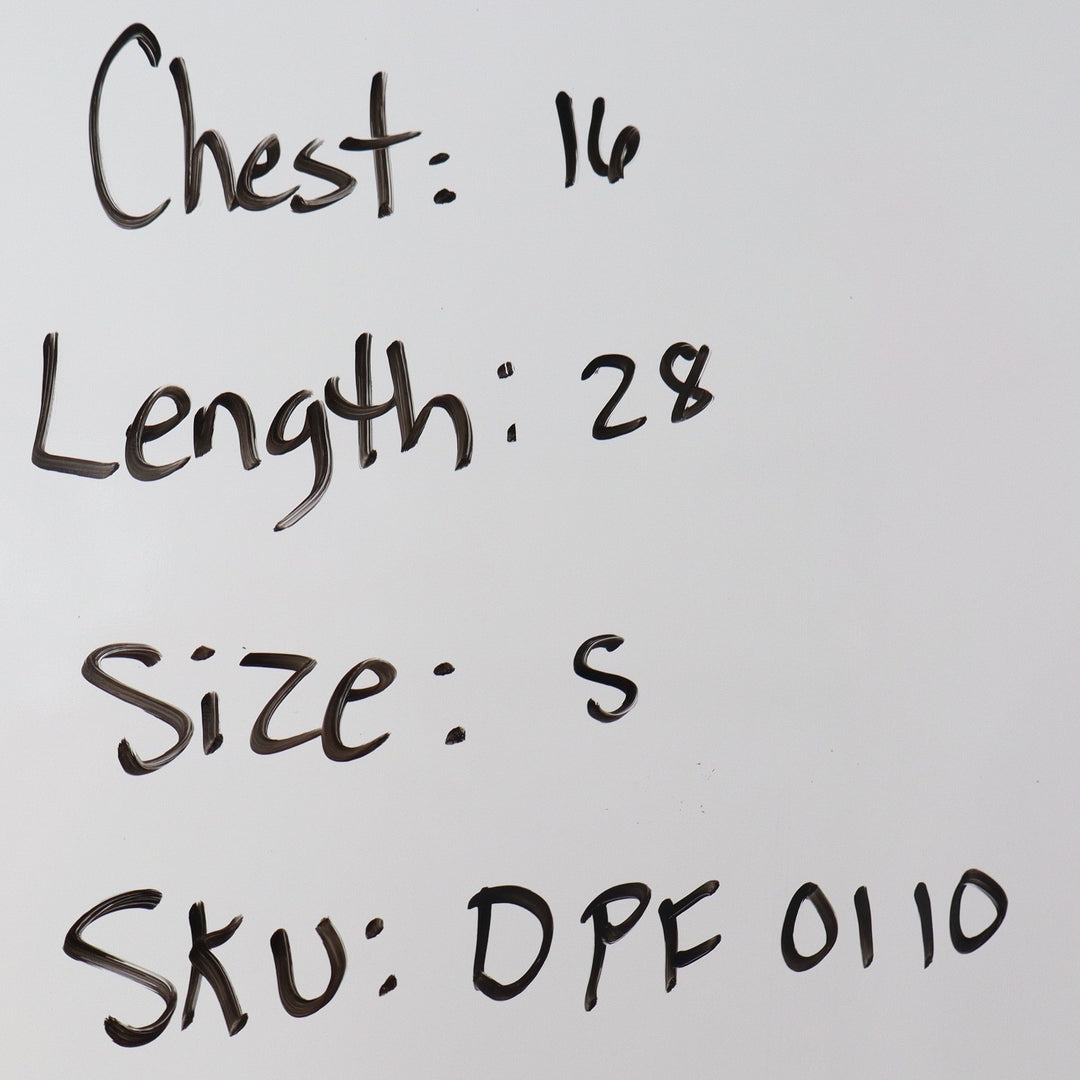 Chest: 16
Length: 28
Size: S
Sku: DPF 0110